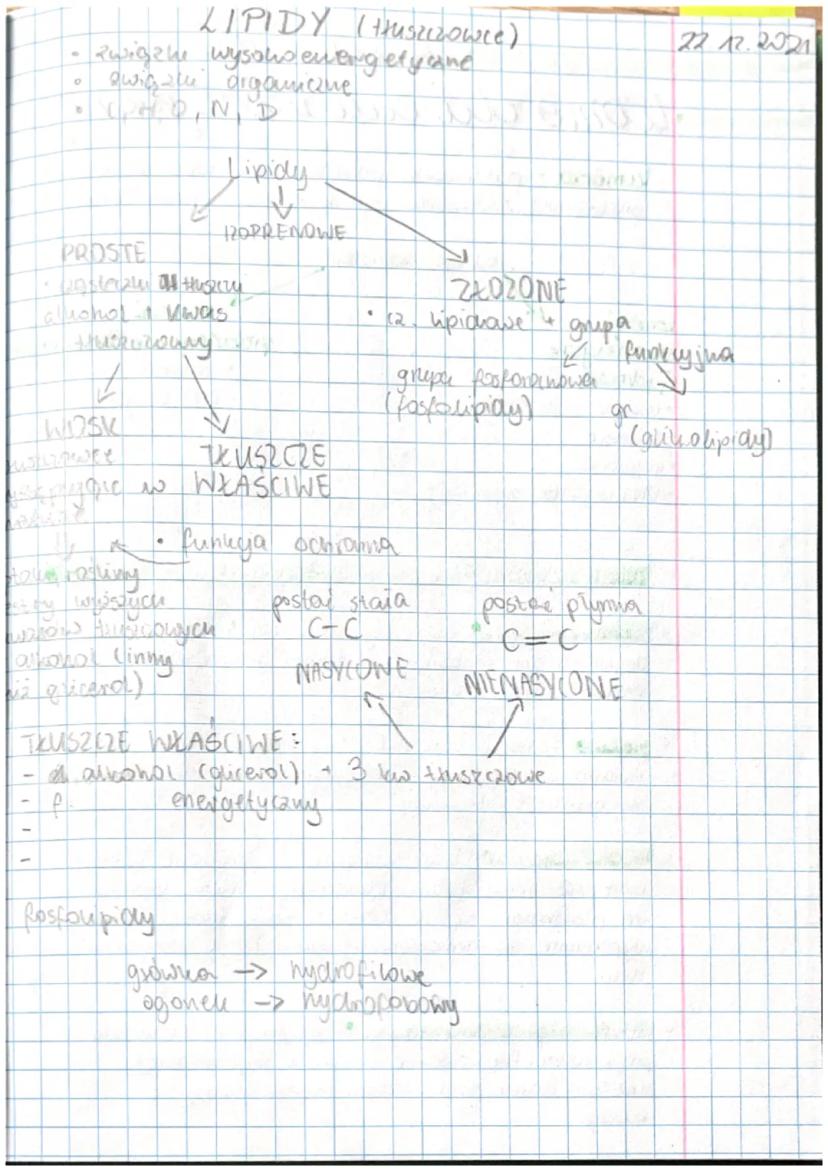 LIPIDY (tłuszczowce)
22 12.2021
• związki wysokoenergetyczne
• związki organiczne
• C, H, O, N,
Lipidy
IZOPRENOWE
PROSTE
ZŁOŻONE
• cząsteczki tłuszczu
alkohol i kwas
tłuszczowy
• cz. lipidowe + grupa
funkcyjna
grupa fosforanowa
(fosfolipidy)
gr
(glikolipidy)
WOSK
TŁUSZCZE
WŁAŚCIWE
w
• funkcja ochronna
rośliny
wyższych
tłuszczowych
alkohol (inny
glicerol)
postać stała
C-C
NASYCONE
postać płynna
C=C
NIENASYCONE
TŁUSZCZE WŁAŚCIWE:
- alkohol (glicerol) + 3 kw tłuszczowe
- f. energetyczny
-
-
fosfolipidy
główka -> hydrofilowe
ogonek -> hydrofobowy